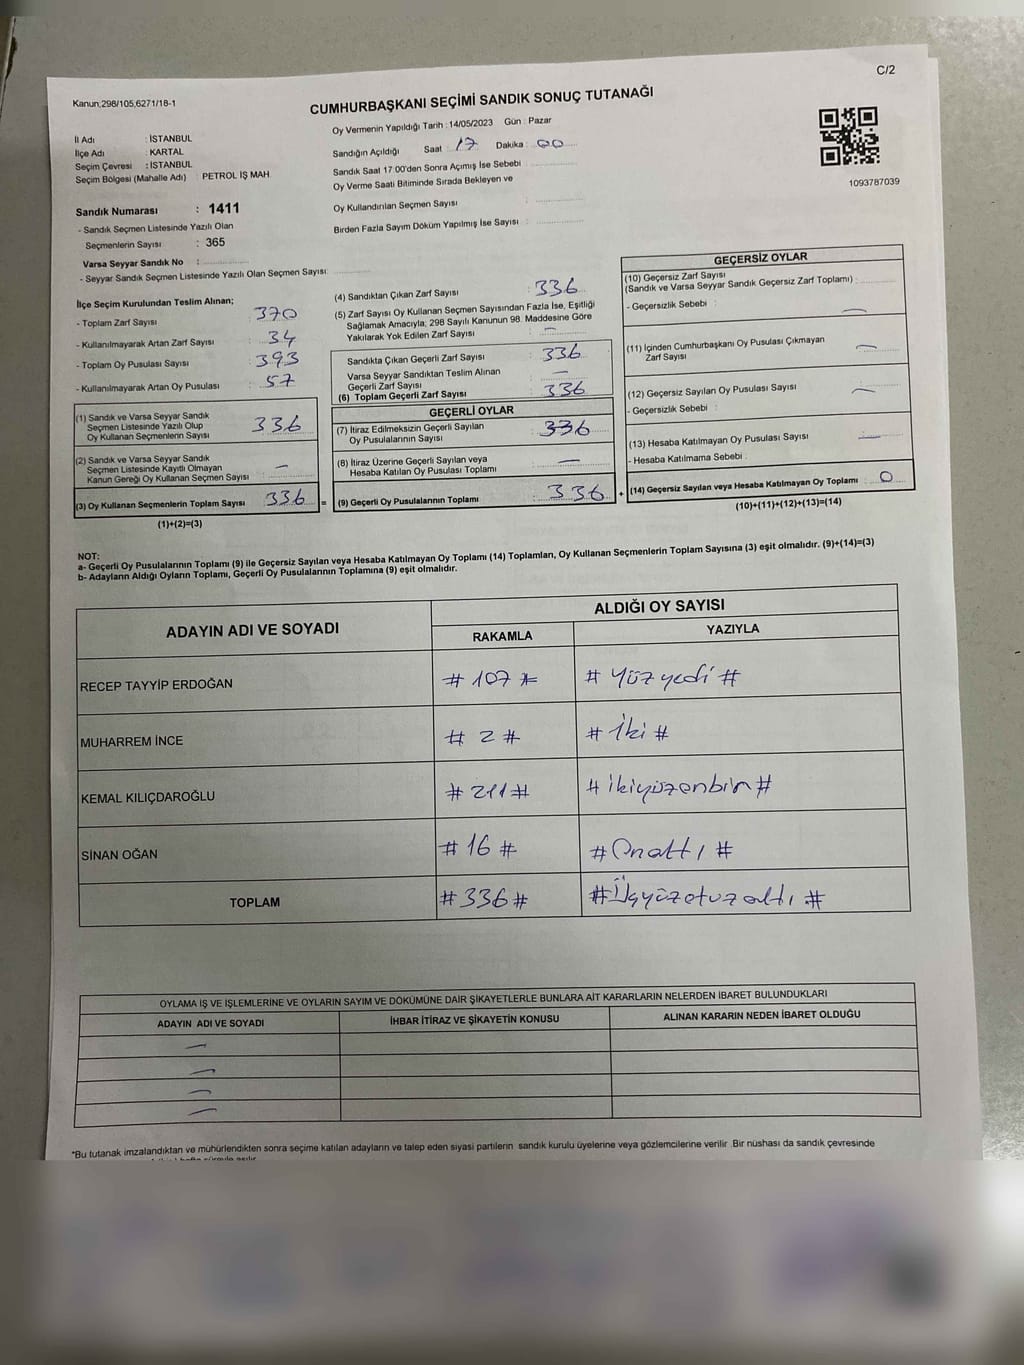 C/2
Kanun;298/105,6271/18-1
CUMHURBAŞKANI SEÇİMİ SANDIK SONUÇ TUTANAĞI
İl Adı : İSTANBUL
İlçe Adı : KARTAL
Seçim Çevresi : İSTANBUL
Seçim Bölgesi (Mahalle Adı) PETROL İŞ MAH.
Sandık Numarası : 1411
- Sandık Seçmen Listesinde Yazılı Olan
Seçmenlerin Sayısı : 365
Varsa Seyyar Sandık No :
- Seyyar Sandık Seçmen Listesinde Yazılı Olan Seçmen Sayısı:
Oy Vermenin Yapıldığı Tarih :14/05/2023 Gün : Pazar
Sandığın Açıldığı Saat : 17 Dakika : 00
Sandık Saat 17:00'den Sonra Açımış İse Sebebi :
Oy Verme Saati Bitiminde Sırada Bekleyen ve
Oy Kullandırılan Seçmen Sayısı :
Birden Fazla Sayım Döküm Yapılmış İse Sayısı :
1093787039
İlçe Seçim Kurulundan Teslim Alınan;
- Toplam Zarf Sayısı : 370
- Kullanılmayarak Artan Zarf Sayısı : 34
- Toplam Oy Pusulası Sayısı : 393
- Kullanılmayarak Artan Oy Pusulası : 57
(1) Sandık ve Varsa Seyyar Sandık
Seçmen Listesinde Yazılı Olup
Oy Kullanan Seçmenlerin Sayısı : 336
(2) Sandık ve Varsa Seyyar Sandık
Seçmen Listesinde Kayıtlı Olmayan
Kanun Gereği Oy Kullanan Seçmen Sayısı : —
(3) Oy Kullanan Seçmenlerin Toplam Sayısı 336 =
(1)+(2)=(3)
(4) Sandıktan Çıkan Zarf Sayısı : 336
(5) Zarf Sayısı Oy Kullanan Seçmen Sayısından Fazla İse, Eşitliği
Sağlamak Amacıyla, 298 Sayılı Kanunun 98. Maddesine Göre
Yakılarak Yok Edilen Zarf Sayısı : —
Sandıkta Çıkan Geçerli Zarf Sayısı : 336
Varsa Seyyar Sandıktan Teslim Alınan
Geçerli Zarf Sayısı : —
(6) Toplam Geçerli Zarf Sayısı : 336
GEÇERLİ OYLAR
(7) İtiraz Edilmeksizin Geçerli Sayılan
Oy Pusulalarının Sayısı : 336
(8) İtiraz Üzerine Geçerli Sayılan veya
Hesaba Katılan Oy Pusulası Toplamı : —
(9) Geçerli Oy Pusulalarının Toplamı : 336 +
GEÇERSİZ OYLAR
(10) Geçersiz Zarf Sayısı
(Sandık ve Varsa Seyyar Sandık Geçersiz Zarf Toplamı) :
- Geçersizlik Sebebi : —
(11) İçinden Cumhurbaşkanı Oy Pusulası Çıkmayan
Zarf Sayısı : —
(12) Geçersiz Sayılan Oy Pusulası Sayısı : —
- Geçersizlik Sebebi :
(13) Hesaba Katılmayan Oy Pusulası Sayısı : —
- Hesaba Katılmama Sebebi :
(14) Geçersiz Sayılan veya Hesaba Katılmayan Oy Toplamı : 0
(10)+(11)+(12)+(13)=(14)
NOT:
a- Geçerli Oy Pusulalarının Toplamı (9) ile Geçersiz Sayılan veya Hesaba Katılmayan Oy Toplamı (14) Toplamları, Oy Kullanan Seçmenlerin Toplam Sayısına (3) eşit olmalıdır. (9)+(14)=(3)
b- Adayların Aldığı Oyların Toplamı, Geçerli Oy Pusulalarının Toplamına (9) eşit olmalıdır.
ADAYIN ADI VE SOYADI ALDIĞI OY SAYISI
RAKAMLA YAZIYLA
RECEP TAYYİP ERDOĞAN # 107 # # Yüzyedi #
MUHARREM İNCE # 2 # # İki #
KEMAL KILIÇDAROĞLU # 211 # # ikiyüzonbir #
SİNAN OĞAN # 16 # # Onaltı #
TOPLAM # 336 # # Üçyüzotuzaltı #
OYLAMA İŞ VE İŞLEMLERİNE VE OYLARIN SAYIM VE DÖKÜMÜNE DAİR ŞİKAYETLERLE BUNLARA AİT KARARLARIN NELERDEN İBARET BULUNDUKLARI
ADAYIN ADI VE SOYADI İHBAR İTİRAZ VE ŞİKAYETİN KONUSU ALINAN KARARIN NEDEN İBARET OLDUĞU
—
—
—
—
*Bu tutanak imzalandıktan ve mühürlendikten sonra seçime katılan adayların ve talep eden siyasi partilerin sandık kurulu üyelerine veya gözlemcilerine verilir .Bir nüshası da sandık çevresinde